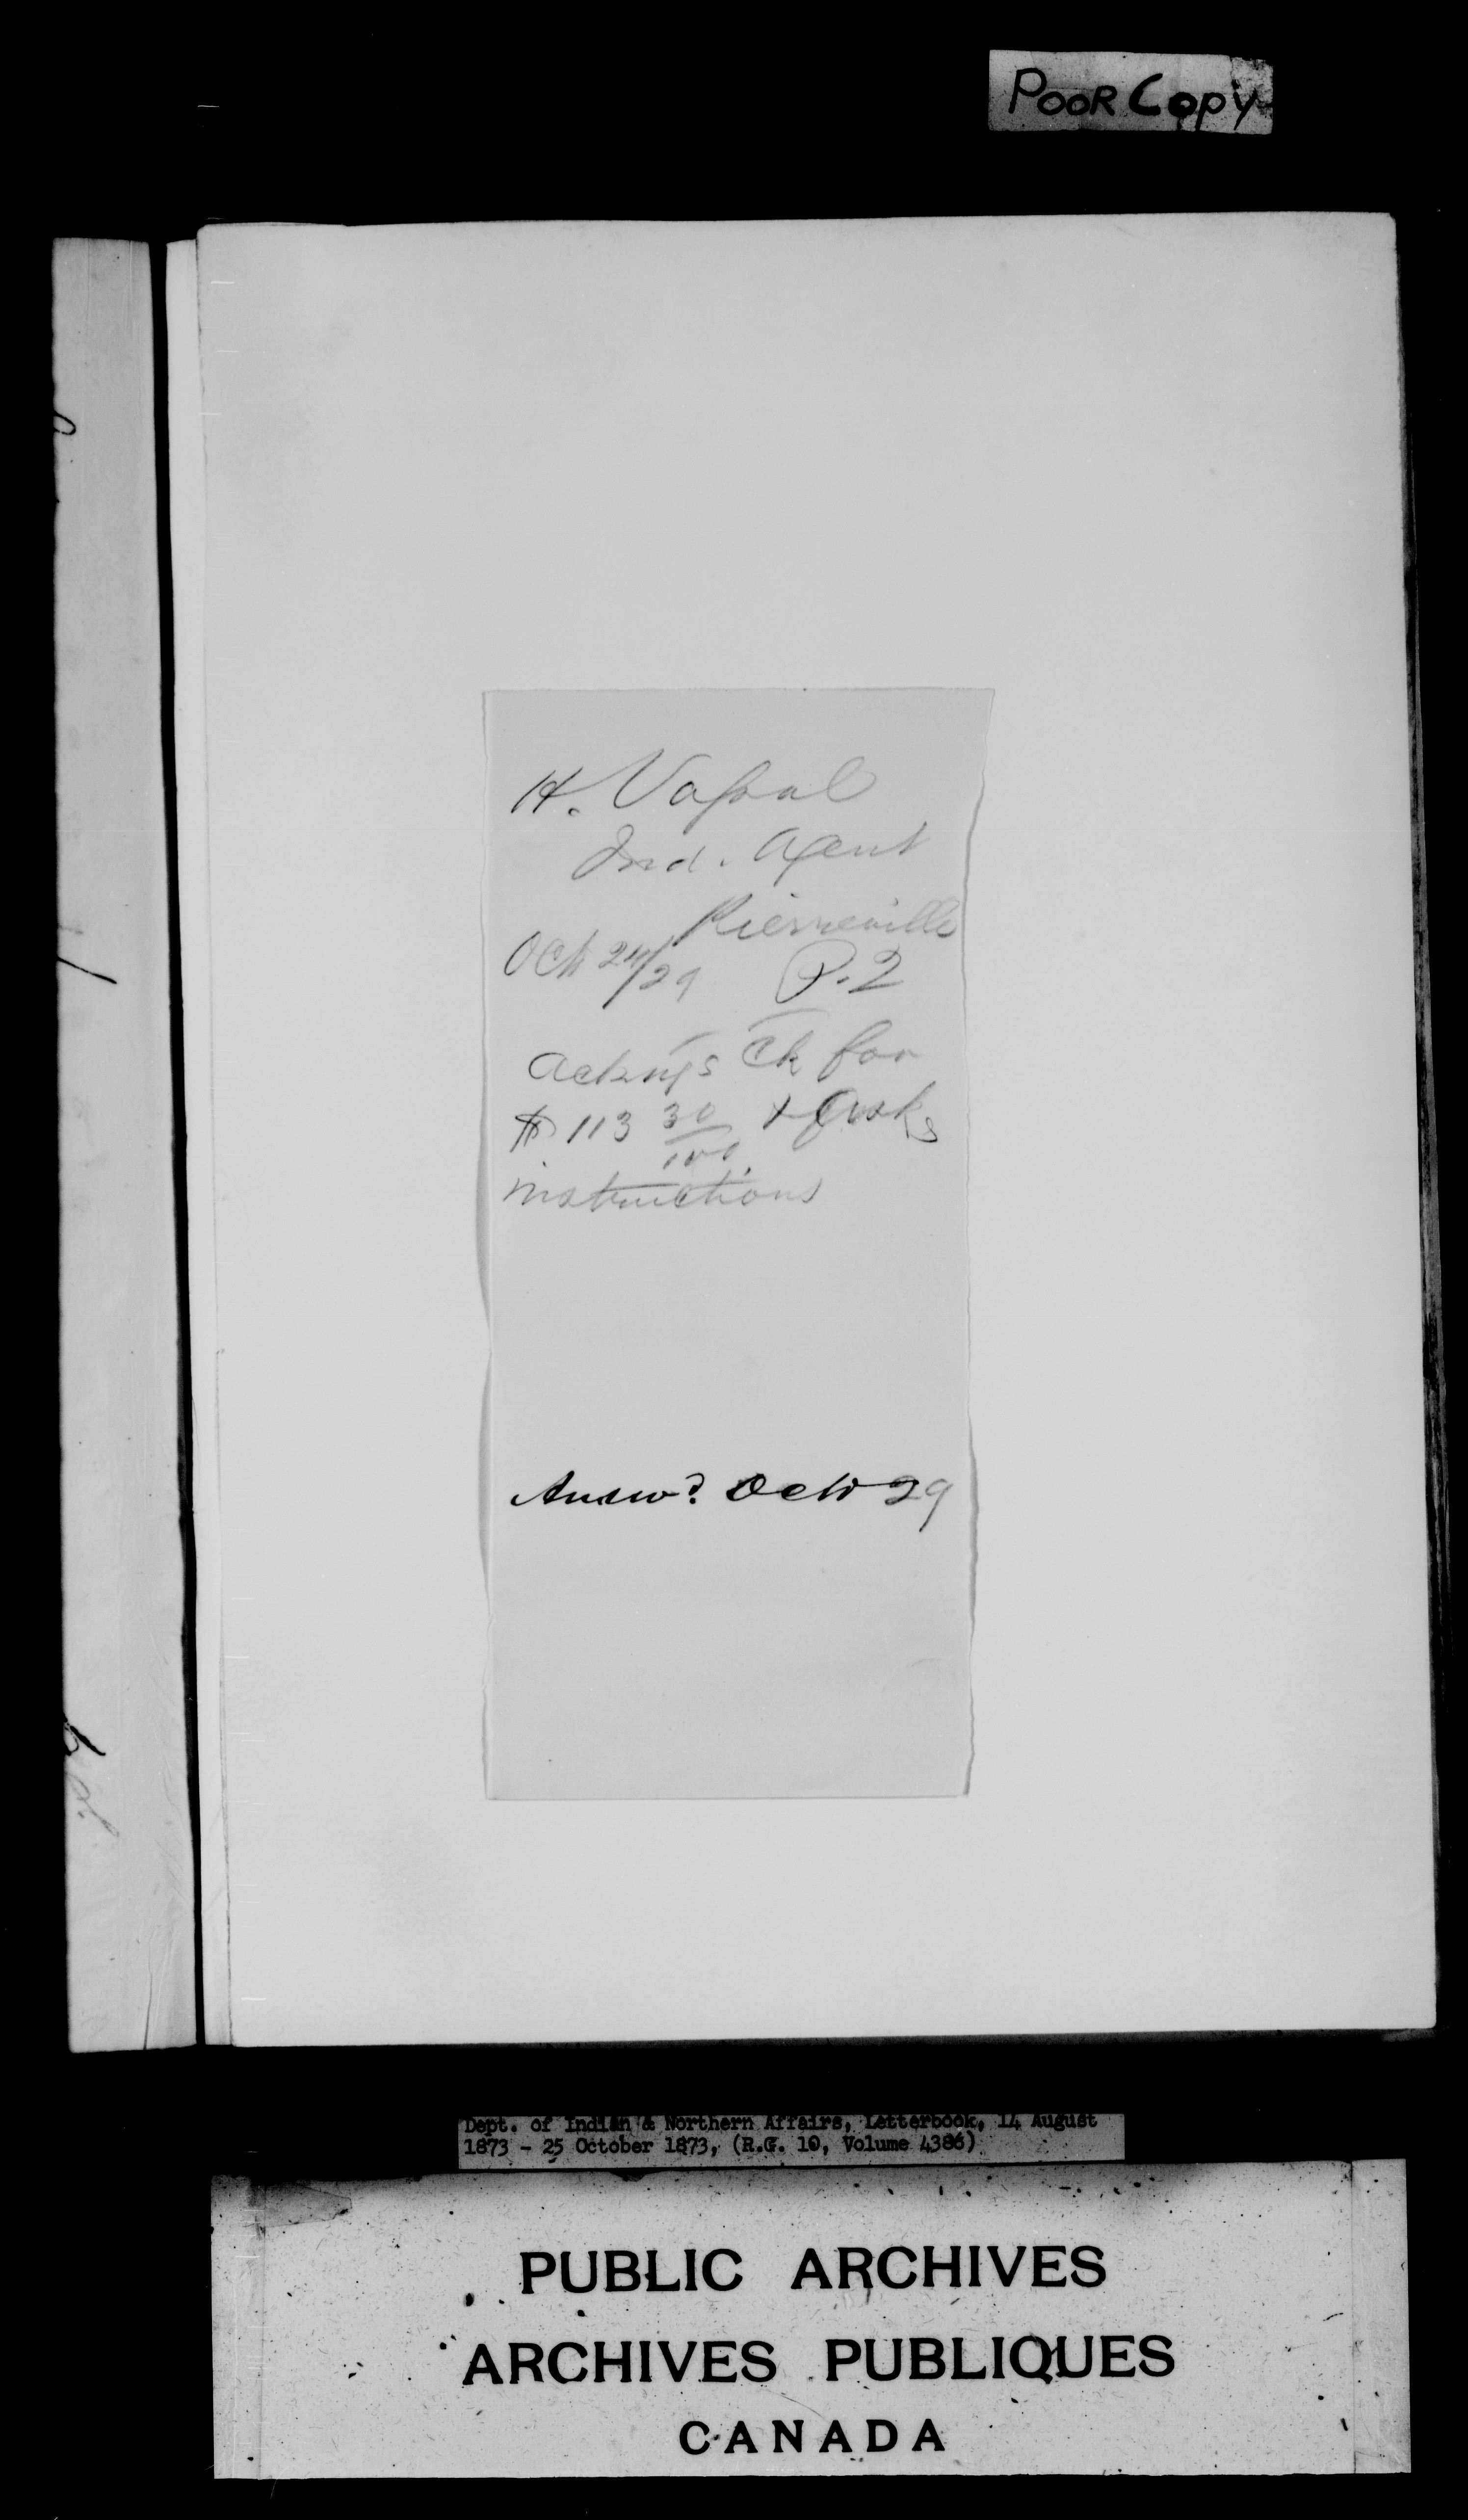 POOR COPY
H. Vassal
Ind. Agent
Pierreville
Oct 24/29 P. Q
Ackngs Ck for
$113 30/100 + asks
instructions
Answd. Oct 29
Dept. of Indian & Northern Affairs, Letterbook, 14 August
1873 - 25 October 1873, (R.G. 10, Volume 4386)
PUBLIC ARCHIVES
ARCHIVES PUBLIQUES
CANADA